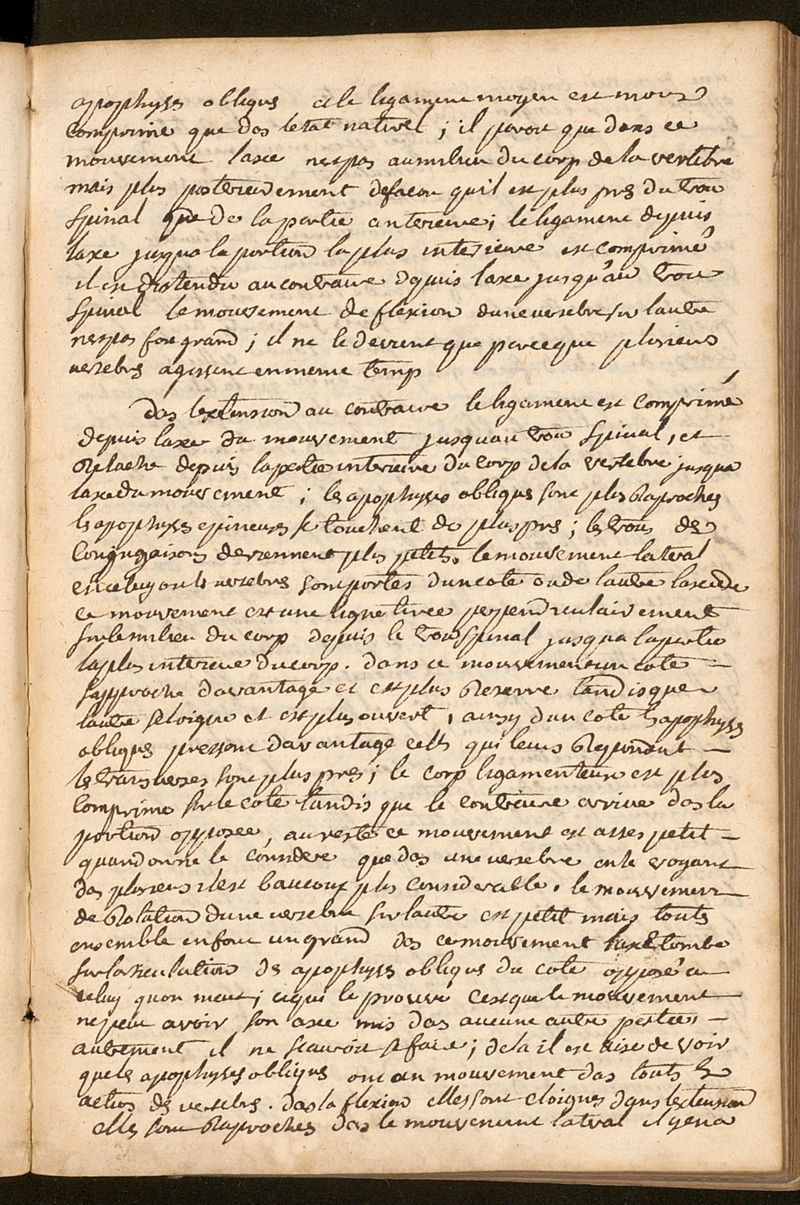 apophyses obliques et le ligament moyen est moins
comprimé que das letat naturel ; il paroit que dans ce
mouvement laxe nespas au milieu du corp de la vertebre
mais plus posterieurement defacon quil est plus pres du trou
spinal que de la partie anterieure ; le ligament depuis
laxe jusqua la portion la plus interieure est comprimé
il est distendu au contraire depuis laxe jusqu'au trou
spinal le mouvement de flexion dune vertebre sur lautre
nespas fort grand ; il ne le devient que parceque plusieurs
vertebres agissent en meme temp
Das lextension au contraire le ligament est comprimé
depuis laxe du mouvement jusquau trou spinal, et
relaché depuis lapartie interieure du corp de la vertebre jusqua
laxe du mouvement ; les apophyses obliques sont plus raproches
les apophyses epineuses se touchent de plus pres ; les trous de
conjugaisons deviennent plus petits. le mouvement lateral
est celuy ou les vertebres sont portés dun coté ou de lautre laxe de
ce mouvement est une ligne tirée perpendiculairement
sur le milieu du corp depuis le trou spinal jusqua la partie
la plus interieure du corp. dans ce mouvement un coté
sapproche davantage et est plus reserré tandis que
lautre seloigne et est plus ouvert, ainsy dun coté les apophyses
obliques pressent davantage celles qui leurs repondent
les transverses sont plus pres ; le corp ligamenteux est plus
comprimé sur le coté tandis que le contraire arrive das la
portion opposée, au reste ce mouvement est asses petit
quand on ne le considere que das une vertebre en le voyant
das plusieurs il est baucoup plus considerable. le mouvement
de rotation dune vertebre sur lautre est petit mais touts
ensemble en font un grand das ce mouvement laxe tombe
sur larticulation des apophyses obliques du coté opposé a
celuy quon meut ; ce qui le prouve cest que le mouvement
ne peut avoir son axe mis das aucune autre parties
autrement il ne scauroit se faire ; de la il est aisé de voir
que les apophyses obliques ont un mouvement das touts les
action des vertebres. das la flexion elles sont eloignes dans lextension
elles sont raproches das le mouvement lateral il y en a